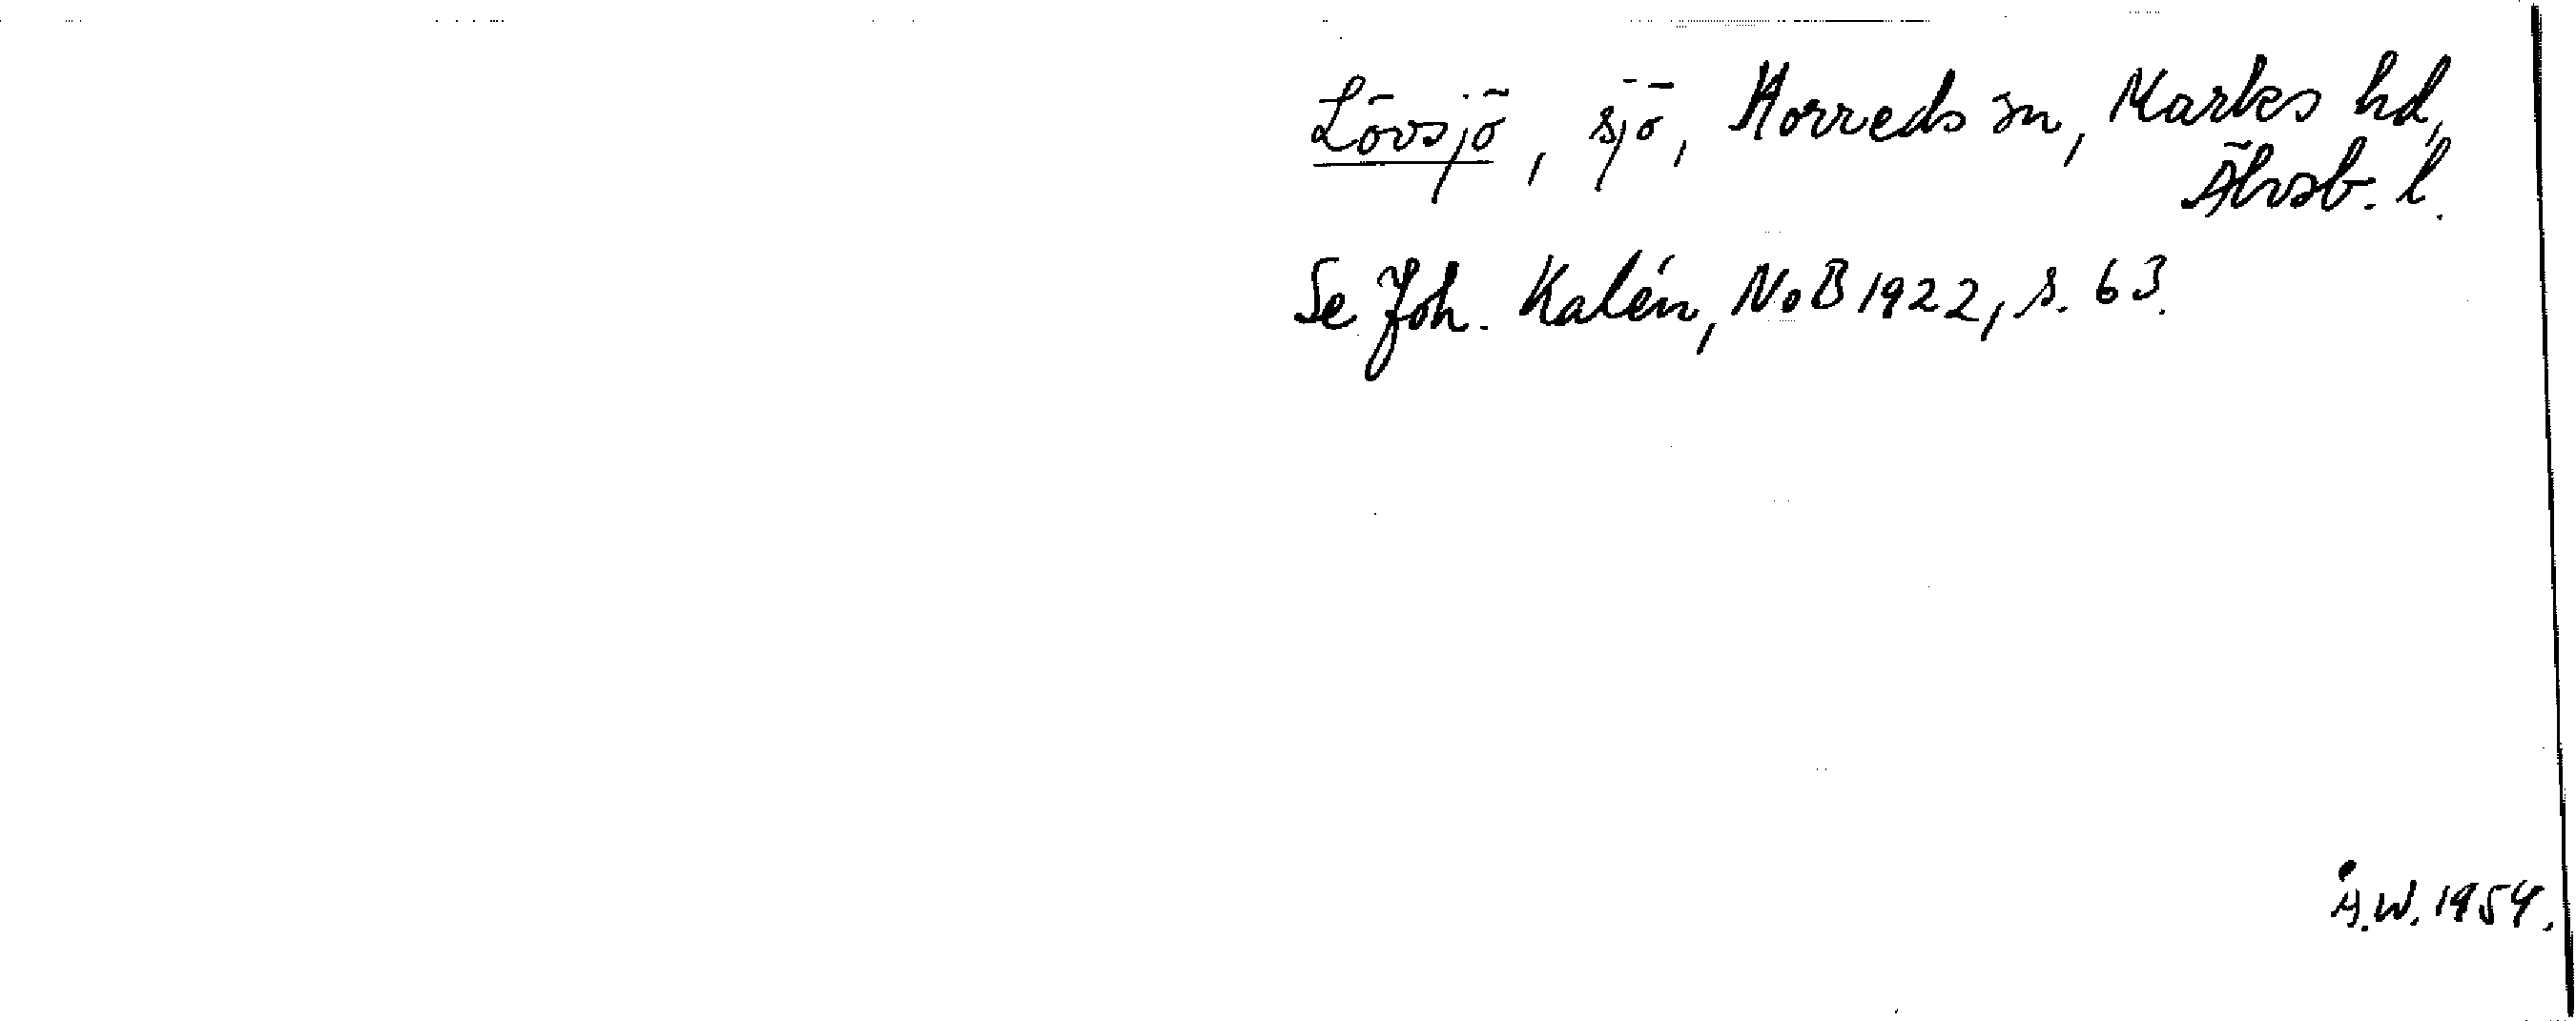 Lövsjö, sjö, Horreds sn, Marks hd,
Älvsb. l.
Se Joh. Kalén, NoB 1922, s. 63.
Å.W. 1954.